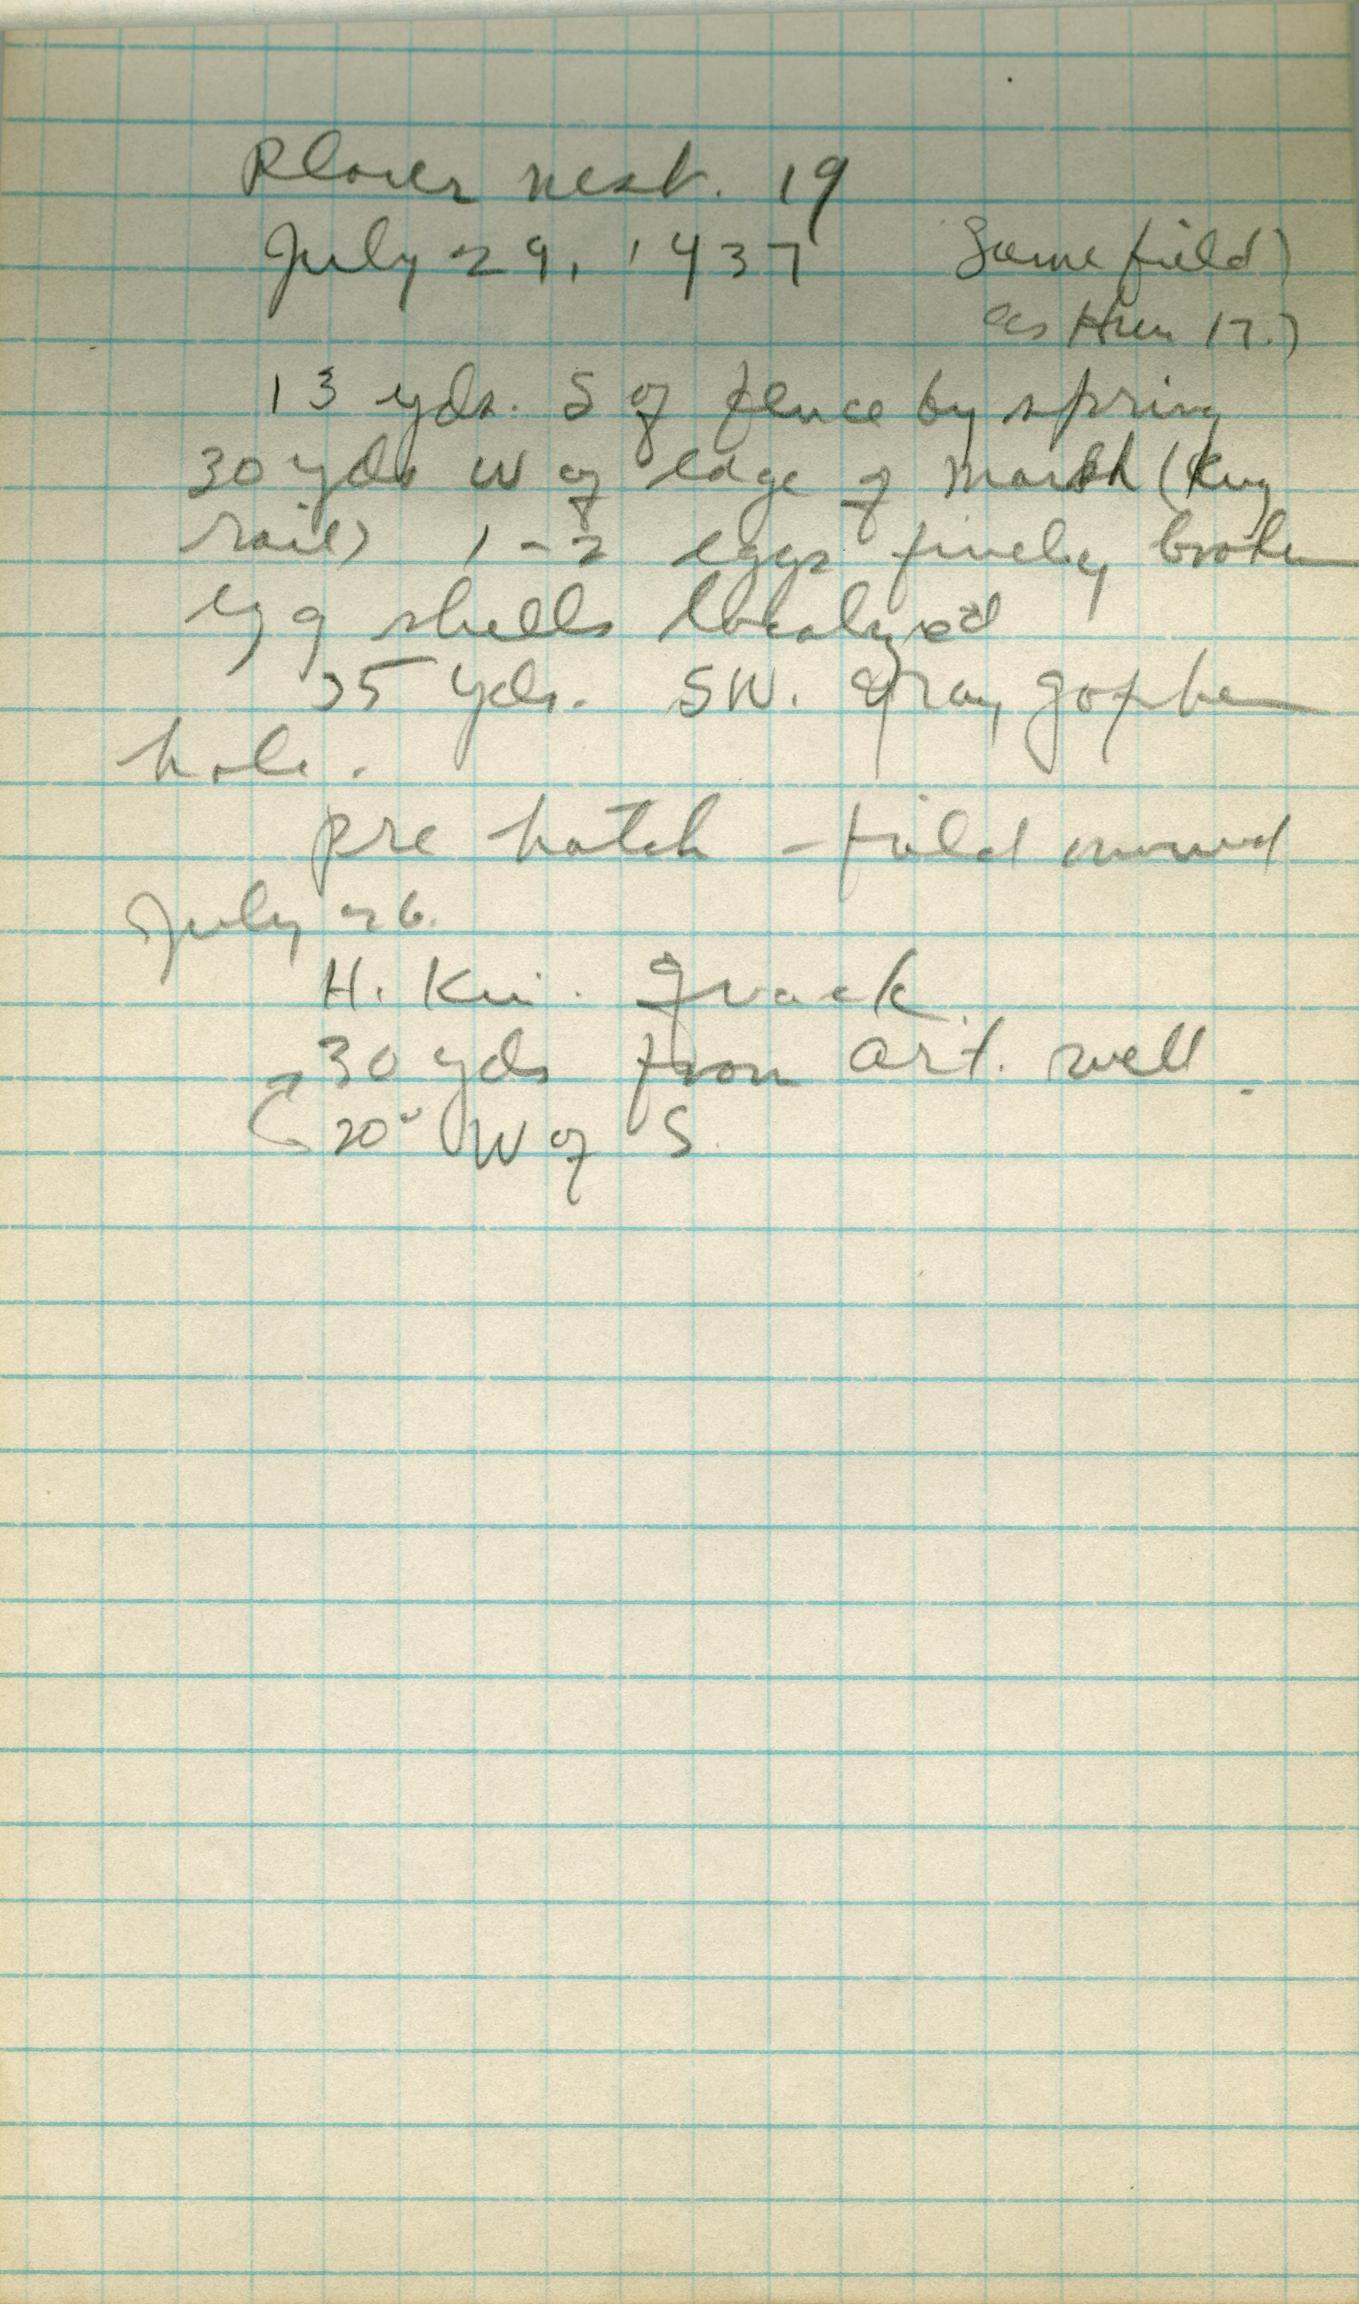 Plover nest. 19
July 29, 1937 Same field)
as Hun 17.)
13 yds. S of fence by spring
30 yds W of edge of marsh (King
rail) 1-2 eggs finely broken
egg shells localized
35 yds. SW. gray gopher
hole.
pre hatch - field mowed
July 26.
H. Track
30 yds from art. well.
20° W of S.